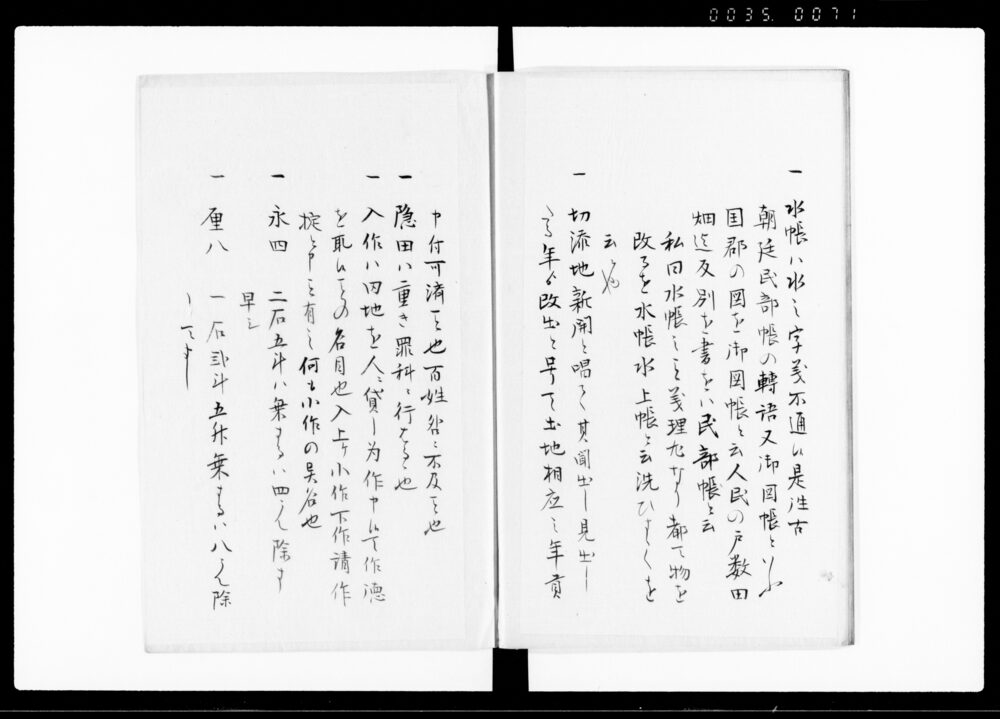 0035. 0071
一 水帳ハ水之字義不通候是往古
朝廷民部帳の轉語又御図帳といふ
国郡の図を御図帳と云人民の戸数田
畑迄反別を書をハ民部帳と云
私曰水帳之義理尤なり都て物を
改るを水帳水上帳と云洗ひすくを
云也
一 切添地新開と唱て其聞出し見出し
之年ゟ改出と号て土地相応之年貢
申付可済事也百姓咎ニ不及事也
一 隠田ハ重き罪科ニ行なる也
一 入作ハ内地を人ニ貸し為作申候て作徳
を取候事の名目也入上ケ小作下作請作
掟ト申事有之何も小作の異名也
一 永四 二石五斗ハ乗するハ四ニて除す
早し
一 厘八 一石弐斗五升乗するハ八ニて除
して